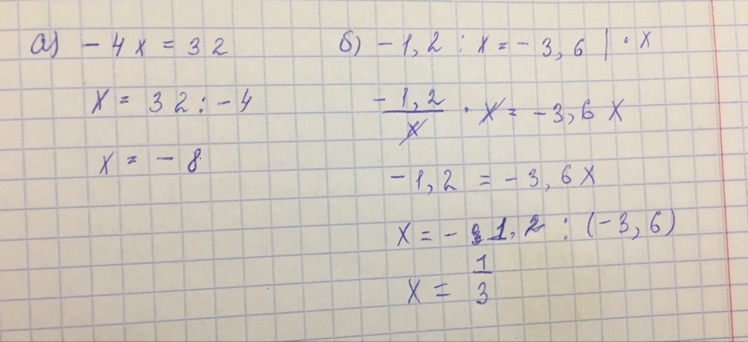 а) - 4x = 32
x = 32 : -4
x = - 8
б) - 1,2 : x = - 3,6 | · x
-1,2/x · x = -3,6 x
-1,2 = -3,6x
x = - 1,2 : (-3,6)
x = 1/3